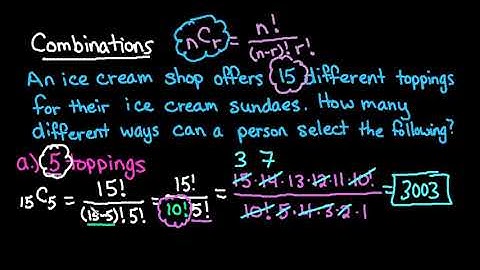 Combinations nCr = n! / (n-r)! r!
An ice cream shop offers 15 different toppings
for their ice cream sundaes. How many
different ways can a person select the following?
a.) 5 toppings
3 7
15C5 = 15! / (15-5)! 5! = 15! / 10! 5! = 15·14·13·12·11·10! / 10!·5·4·3·2·1 = 3003